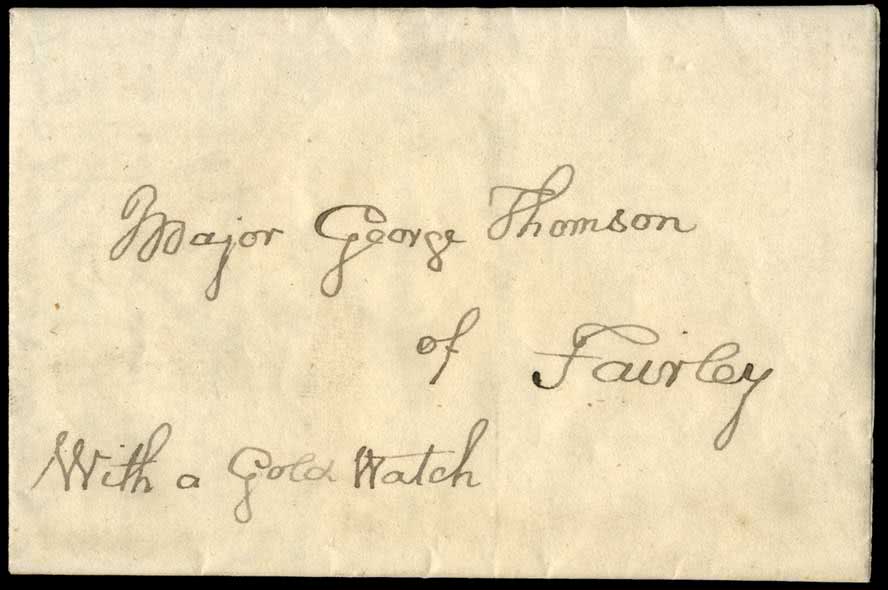 Major George Thomson
of Fairley
With a Gold Watch